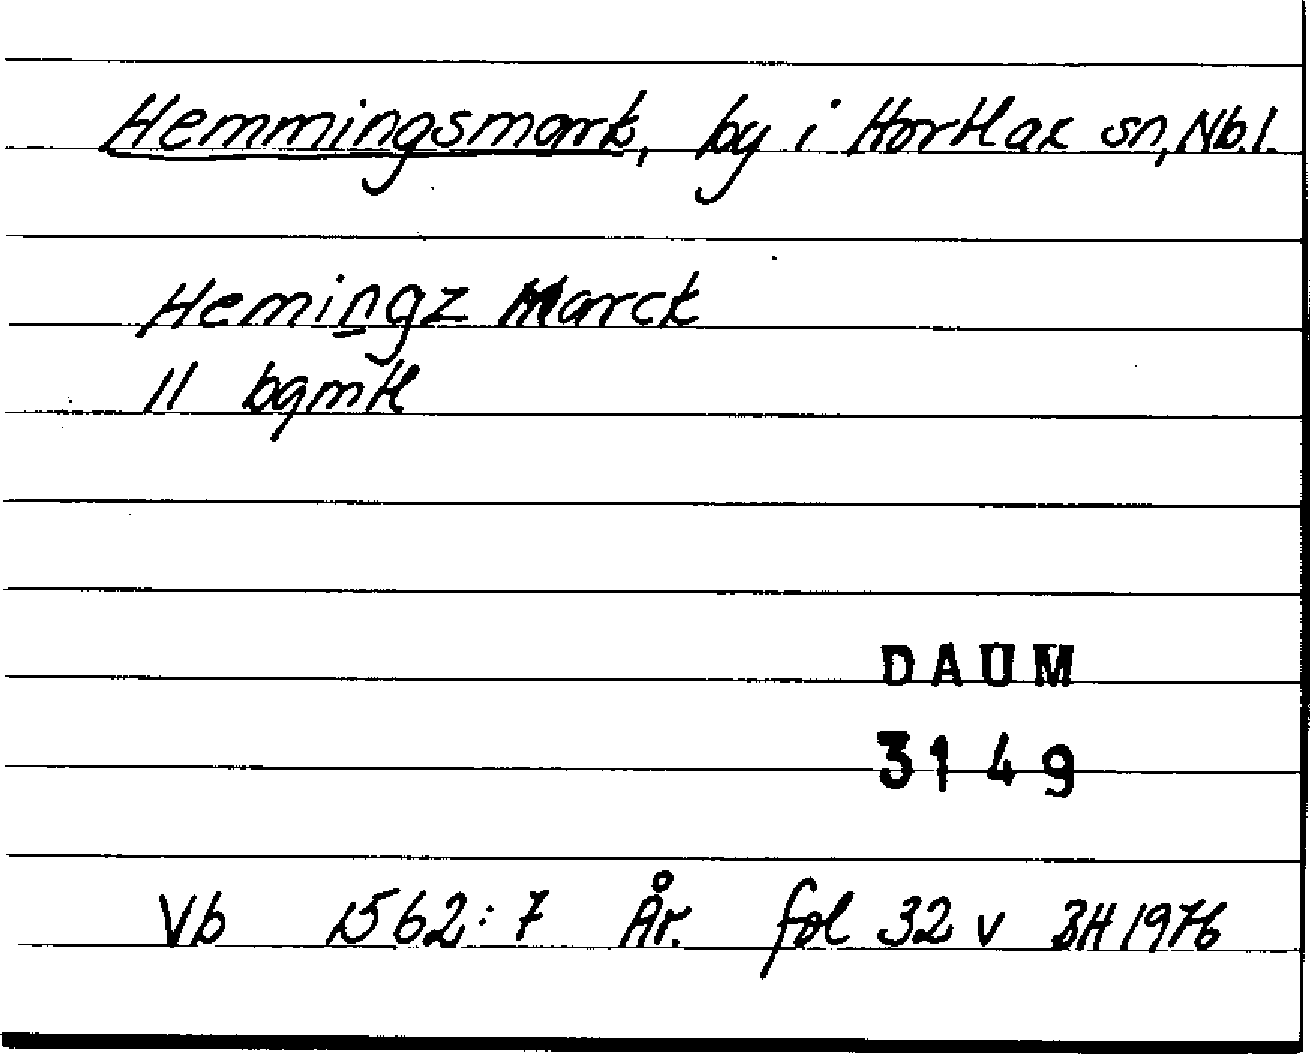 Hemmingsmark, by i Hortlax sn, Nb.l.
Hemingz Marck
11 bgmtl
DAUM
3149
Vb 1562:7 År. fol 32 v BH 1976